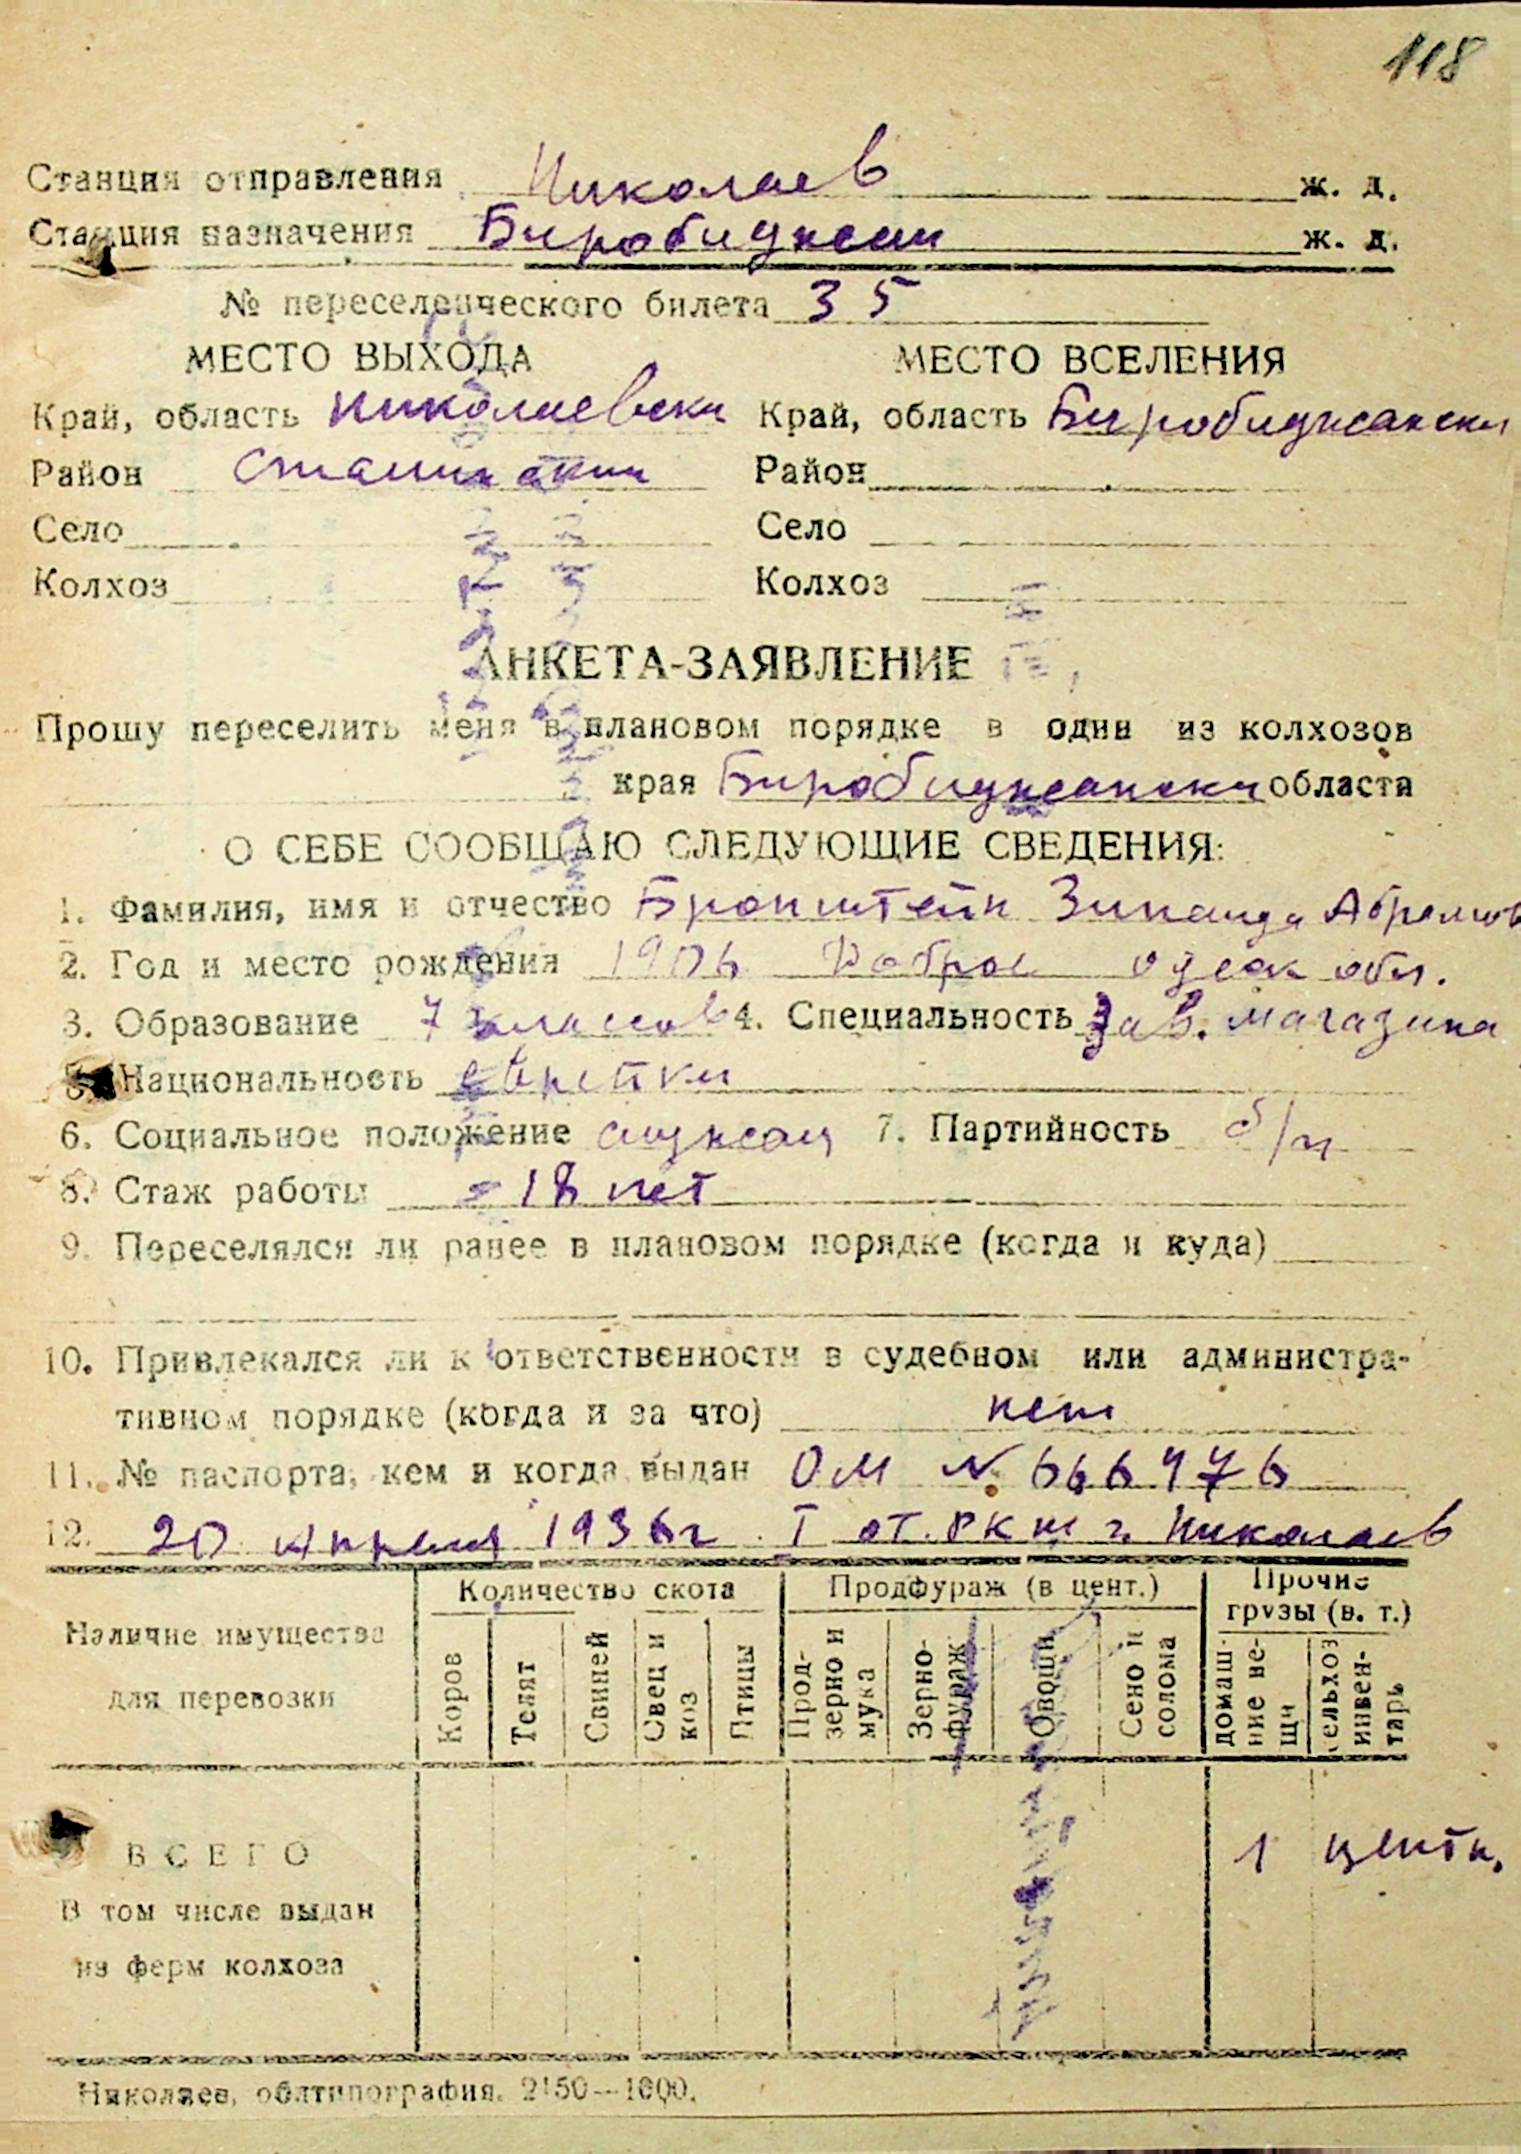 118
Станция отправления Николаев ж. д.
Станция назначения Биробиджан ж. д.
№ переселенческого билета 35
МЕСТО ВЫХОДА МЕСТО ВСЕЛЕНИЯ
Край, область Николаевски Край, область Биробиджански
Район Сталински Район
Село Село
Колхоз Колхоз
АНКЕТА-ЗАЯВЛЕНИЕ
Прошу переселить меня в плановом порядке в один из колхозов
края Биробиджански области
О СЕБЕ СООБЩАЮ СЛЕДУЮЩИЕ СВЕДЕНИЯ:
1. Фамилия, имя и отчество Бронштейн Зинаида Абрамов
2. Год и место рождения 1906 Доброе одеск обл.
3. Образование 7 классов 4. Специальность Зав. магазина
5. Национальность еврейки
6. Социальное положение служащ 7. Партийность б/п
8. Стаж работы 18 лет
9. Переселялся ли ранее в плановом порядке (когда и куда)
10. Привлекался ли к ответственности в судебном или администра-
тивном порядке (когда и за что) нет
11. № паспорта, кем и когда выдан ОМ № 666476
12. 20 апреля 1936г I от. РКМ г. Николаев
Наличие имущества
для перевозки
Количество скота Продфураж (в цент.) Прочие
грузы (в. т.)
Коров
Телят
Свиней
Овец и
коз
Птицы
Прод-
зерно и
мука
Зерно-
фураж
Овощи
Сено и
солома
домаш-
ние ве-
щи
сельхоз
инвен-
тарь
ВСЕГО 1 центн.
В том числе выдан
из ферм колхоза
Николаев, облтипография. 2150—1000.